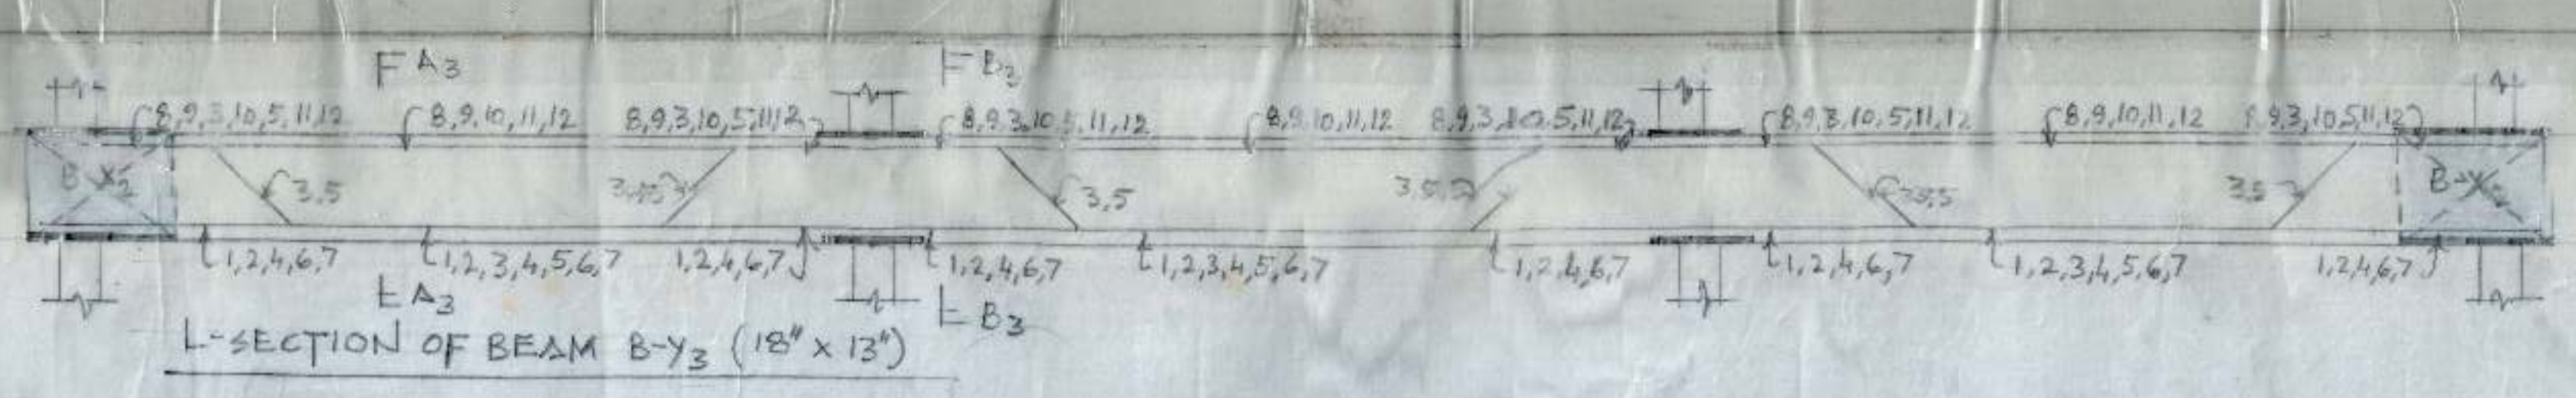 A3
B3
8,9,3,10,5,11,12
8,9,10,11,12
8,9,3,10,5,11,12
8,9,3,10,5,11,12
8,9,10,11,12
8,9,3,10,5,11,12
8,9,3,10,5,11,12
8,9,10,11,12
8,9,3,10,5,11,12
3,5
3,5
3,5
1,2,4,6,7
1,2,3,4,5,6,7
1,2,4,6,7
1,2,4,6,7
1,2,3,4,5,6,7
1,2,4,6,7
1,2,4,6,7
1,2,3,4,5,6,7
1,2,4,6,7
A3
B3
L-SECTION OF BEAM B-Y3 (18" X 13")